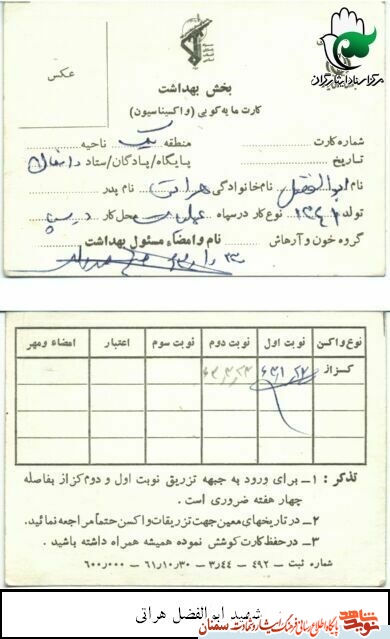 مرکز اسناد ایثارگران
عکس
بخش بهداشت
کارت مایه کوبی (واکسیناسیون)
شماره کارت منطقه یک ناحیه
تاریخ پایگاه/پادگان/ستاد دامغان
نام ابوالفضل نام خانوادگی هراتی نام پدر
تولد ۱۳۴۱ نوع کار در سپاه عملیات محل کار
گروه خون و آرهاش نام و امضاء مسئول بهداشت
نوع واکسن نوبت اول نوبت دوم نوبت سوم اعتبار امضاء ومهر
کزاز
تذکر : ۱– برای ورود به جبهه تزریق نوبت اول و دوم کزاز بفاصله
چهار هفته ضروری است .
۲– در تاریخهای معین جهت تزریقات واکسن حتماً مراجعه نمائید.
۳– در حفظ کارت کوشش نموده همیشه همراه داشته باشید .
شماره ثبت – ۴۹۲ – ۳/۴۴ – ۶۱/۱۰/۳۰ – ۶۰۰/۰۰۰
شهید ابوالفضل هراتی
نوید شاهد پایگاه اطلاع رسانی فرهنگ ایثار و شهادت سمنان